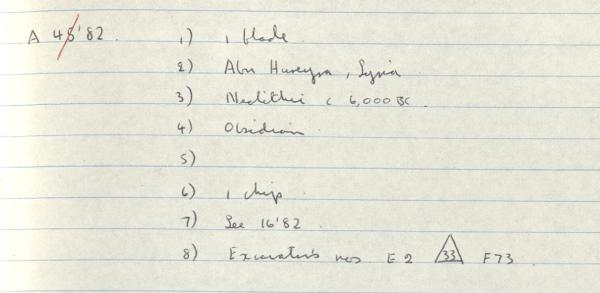 A 48'82 1) 1 blade
2) Abu Hureyra, Syria
3) Neolithic c 6,000 BC.
4) Obsidian
5)
6) 1 chip
7) See 16'82
8) Excavator's nos E 2 33 F73